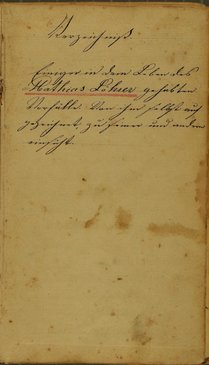 Verzeichniß
Einiger in dem Leben des
Mathias Löhner gehabten
Vorfälle. Von ihm selbst auf
gezeichnet, zu seiner und andern
einsicht.